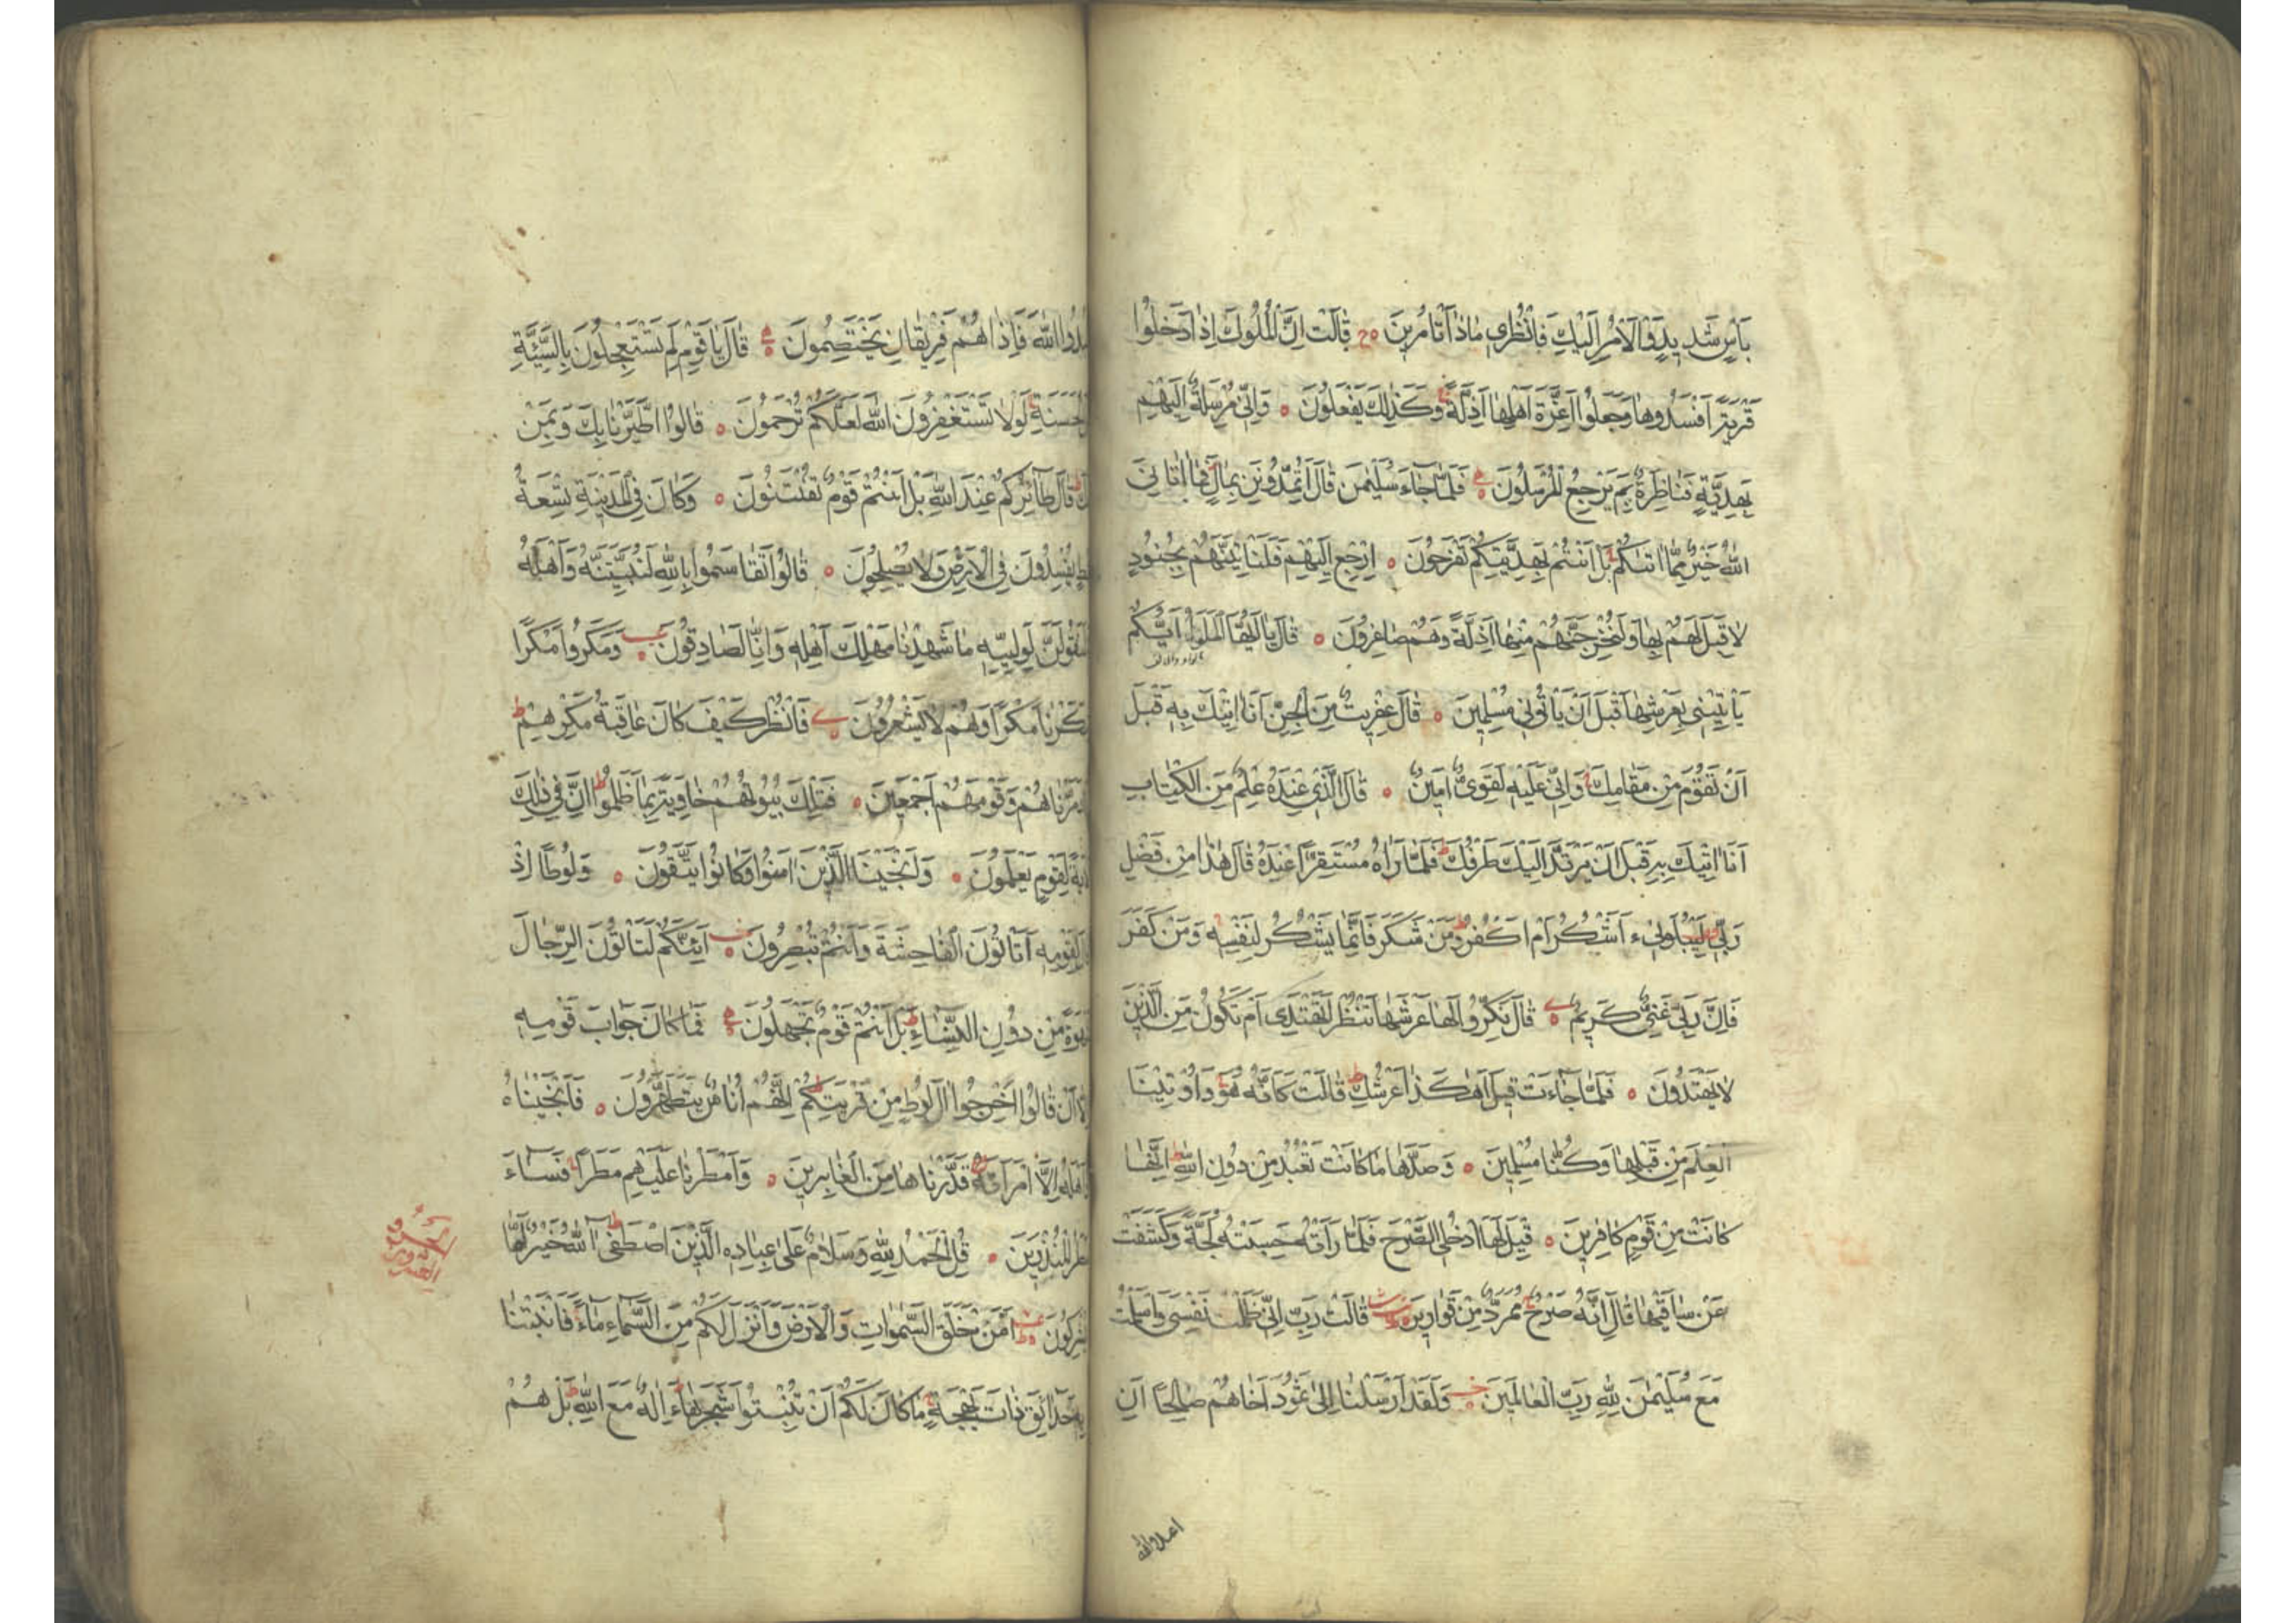 بَأْسٍ شَدِيدٍ وَالْاَمْرُ اِلَيْكِ فَانْظُرِي مَاذَا تَأْمُرِينَ قَالَتْ اِنَّ الْمُلُوكَ اِذَا دَخَلُوا
قَرْيَةً اَفْسَدُوهَا وَجَعَلُوا اَعِزَّةَ اَهْلِهَا اَذِلَّةً وَكَذٰلِكَ يَفْعَلُونَ وَاِنِّي مُرْسِلَةٌ اِلَيْهِمْ
بِهَدِيَّةٍ فَنَاظِرَةٌ بِمَ يَرْجِعُ الْمُرْسَلُونَ فَلَمَّا جَاءَ سُلَيْمٰنَ قَالَ اَتُمِدُّونَنِ بِمَالٍ فَمَا اٰتَانِيَ
اللّٰهُ خَيْرٌ مِمَّا اٰتٰيكُمْ بَلْ اَنْتُمْ بِهَدِيَّتِكُمْ تَفْرَحُونَ اِرْجِعْ اِلَيْهِمْ فَلَنَأْتِيَنَّهُمْ بِجُنُودٍ
لَا قِبَلَ لَهُمْ بِهَا وَلَنُخْرِجَنَّهُمْ مِنْهَا اَذِلَّةً وَهُمْ صَاغِرُونَ قَالَ يَا اَيُّهَا الْمَلَؤُا اَيُّكُمْ
يَأْتِينِي بِعَرْشِهَا قَبْلَ اَنْ يَأْتُونِي مُسْلِمِينَ قَالَ عِفْرِيتٌ مِنَ الْجِنِّ اَنَا اٰتِيكَ بِهِ قَبْلَ
اَنْ تَقُومَ مِنْ مَقَامِكَ وَاِنِّي عَلَيْهِ لَقَوِيٌّ اَمِينٌ قَالَ الَّذِي عِنْدَهُ عِلْمٌ مِنَ الْكِتَابِ
اَنَا اٰتِيكَ بِهِ قَبْلَ اَنْ يَرْتَدَّ اِلَيْكَ طَرْفُكَ فَلَمَّا رَاٰهُ مُسْتَقِرًّا عِنْدَهُ قَالَ هٰذَا مِنْ فَضْلِ
رَبِّي لِيَبْلُوَنِيءَ اَشْكُرُ اَمْ اَكْفُرُ وَمَنْ شَكَرَ فَاِنَّمَا يَشْكُرُ لِنَفْسِهِ وَمَنْ كَفَرَ
فَاِنَّ رَبِّي غَنِيٌّ كَرِيمٌ قَالَ نَكِّرُوا لَهَا عَرْشَهَا نَنْظُرْ اَتَهْتَدِي اَمْ تَكُونُ مِنَ الَّذِينَ
لَا يَهْتَدُونَ فَلَمَّا جَاءَتْ قِيلَ اَهٰكَذَا عَرْشُكِ قَالَتْ كَاَنَّهُ هُوَ وَاُوتِينَا
الْعِلْمَ مِنْ قَبْلِهَا وَكُنَّا مُسْلِمِينَ وَصَدَّهَا مَا كَانَتْ تَعْبُدُ مِنْ دُونِ اللّٰهِ اِنَّهَا
كَانَتْ مِنْ قَوْمٍ كَافِرِينَ قِيلَ لَهَا ادْخُلِي الصَّرْحَ فَلَمَّا رَاَتْهُ حَسِبَتْهُ لُجَّةً وَكَشَفَتْ
عَنْ سَاقَيْهَا قَالَ اِنَّهُ صَرْحٌ مُمَرَّدٌ مِنْ قَوَارِيرَ قَالَتْ رَبِّ اِنِّي ظَلَمْتُ نَفْسِي وَاَسْلَمْتُ
مَعَ سُلَيْمٰنَ لِلّٰهِ رَبِّ الْعَالَمِينَ وَلَقَدْ اَرْسَلْنَا اِلٰى ثَمُودَ اَخَاهُمْ صَالِحًا اَنِ
اعبدوا الله
اعْبُدُوا اللّٰهَ فَاِذَا هُمْ فَرِيقَانِ يَخْتَصِمُونَ قَالَ يَا قَوْمِ لِمَ تَسْتَعْجِلُونَ بِالسَّيِّئَةِ
الْحَسَنَةِ لَوْلَا تَسْتَغْفِرُونَ اللّٰهَ لَعَلَّكُمْ تُرْحَمُونَ قَالُوا اطَّيَّرْنَا بِكَ وَبِمَنْ
قَالَ طَائِرُكُمْ عِنْدَ اللّٰهِ بَلْ اَنْتُمْ قَوْمٌ تُفْتَنُونَ وَكَانَ فِي الْمَدِينَةِ تِسْعَةُ
يُفْسِدُونَ فِي الْاَرْضِ وَلَا يُصْلِحُونَ قَالُوا تَقَاسَمُوا بِاللّٰهِ لَنُبَيِّتَنَّهُ وَاَهْلَهُ
لَنَقُولَنَّ لِوَلِيِّهِ مَا شَهِدْنَا مَهْلِكَ اَهْلِهِ وَاِنَّا لَصَادِقُونَ وَمَكَرُوا مَكْرًا
مَكَرْنَا مَكْرًا وَهُمْ لَا يَشْعُرُونَ فَانْظُرْ كَيْفَ كَانَ عَاقِبَةُ مَكْرِهِمْ
دَمَّرْنَاهُمْ وَقَوْمَهُمْ اَجْمَعِينَ فَتِلْكَ بُيُوتُهُمْ خَاوِيَةً بِمَا ظَلَمُوا اِنَّ فِي ذٰلِكَ
لَاٰيَةً لِقَوْمٍ يَعْلَمُونَ وَاَنْجَيْنَا الَّذِينَ اٰمَنُوا وَكَانُوا يَتَّقُونَ وَلُوطًا اِذْ
لِقَوْمِهِ اَتَأْتُونَ الْفَاحِشَةَ وَاَنْتُمْ تُبْصِرُونَ اَئِنَّكُمْ لَتَأْتُونَ الرِّجَالَ
شَهْوَةً مِنْ دُونِ النِّسَاءِ بَلْ اَنْتُمْ قَوْمٌ تَجْهَلُونَ فَمَا كَانَ جَوَابَ قَوْمِهِ
اِلَّا اَنْ قَالُوا اَخْرِجُوا اٰلَ لُوطٍ مِنْ قَرْيَتِكُمْ اِنَّهُمْ اُنَاسٌ يَتَطَهَّرُونَ فَاَنْجَيْنَاهُ
وَاَهْلَهُ اِلَّا امْرَاَتَهُ قَدَّرْنَاهَا مِنَ الْغَابِرِينَ وَاَمْطَرْنَا عَلَيْهِمْ مَطَرًا فَسَاءَ
مَطَرُ الْمُنْذَرِينَ قُلِ الْحَمْدُ لِلّٰهِ وَسَلَامٌ عَلٰى عِبَادِهِ الَّذِينَ اصْطَفٰى اٰللّٰهُ خَيْرٌ اَمَّا
يُشْرِكُونَ اَمَّنْ خَلَقَ السَّمٰوَاتِ وَالْاَرْضَ وَاَنْزَلَ لَكُمْ مِنَ السَّمَاءِ مَاءً فَاَنْبَتْنَا
بِهِ حَدَائِقَ ذَاتَ بَهْجَةٍ مَا كَانَ لَكُمْ اَنْ تُنْبِتُوا شَجَرَهَا ءَاِلٰهٌ مَعَ اللّٰهِ بَلْ هُمْ